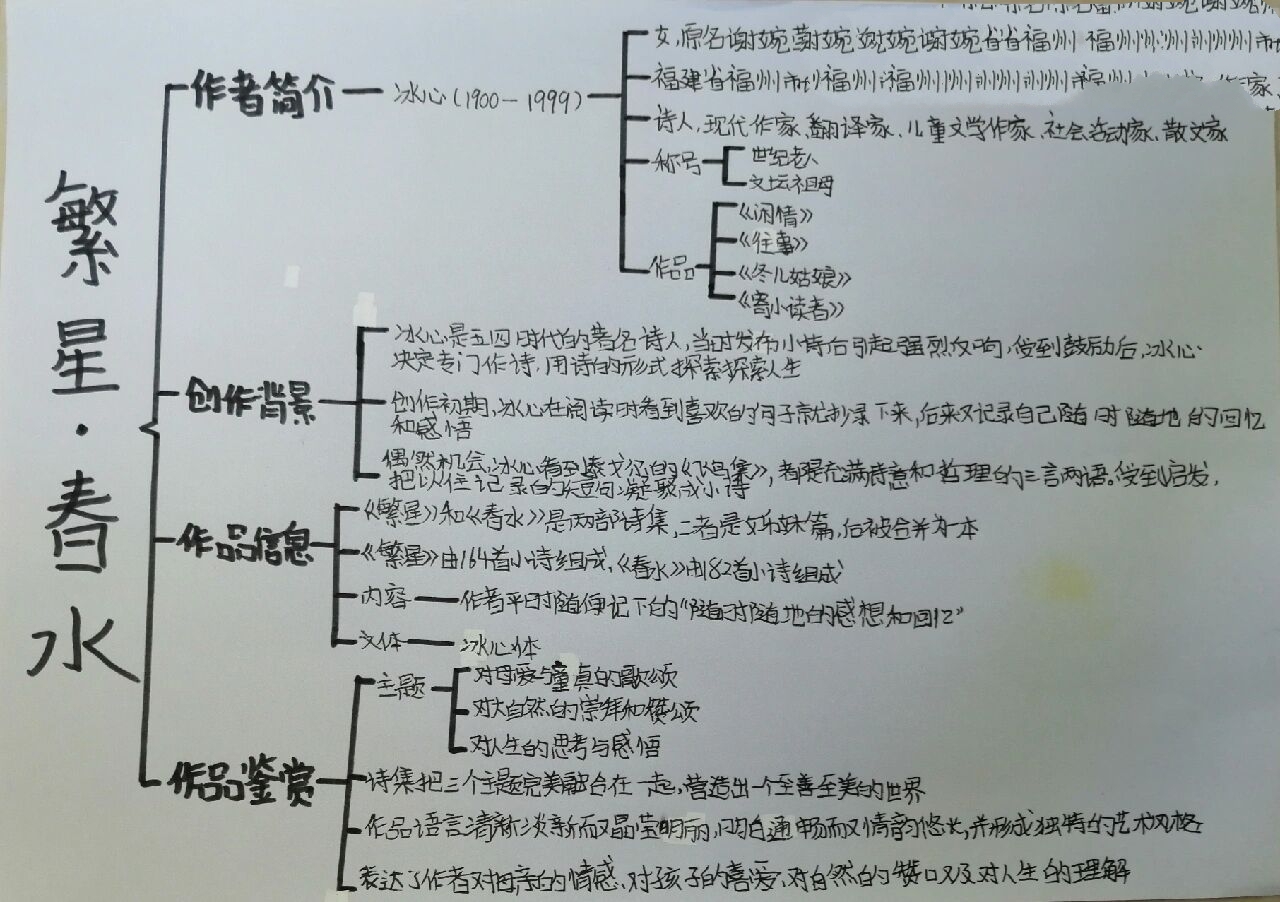 繁星·春水
作者简介
冰心(1900-1999)
女,原名谢婉
福建省福州市
诗人,现代作家、翻译家、儿童文学作家、社会活动家、散文家
称号
世纪老人
文坛祖母
作品
《闲情》
《往事》
《冬儿姑娘》
《寄小读者》
创作背景
冰心是五四时代的著名诗人,当时发布小诗后引起强烈反响,受到鼓励后,冰心
决定专门作诗,用诗的形式探索探索人生
创作初期,冰心在阅读时看到喜欢的句子就抄录下来,后来又记录自己随时随地的回忆
和感悟
偶然机会,冰心看到泰戈尔的《飞鸟集》,都是充满诗意和哲理的三言两语,受到启发,
把以往记录的短句凝聚成小诗
作品信息
《繁星》和《春水》是两部诗集,二者是姊妹篇,后被合并为一本
《繁星》由164首小诗组成,《春水》由82首小诗组成
内容
作者平时随便记下的“随时随地的感想和回忆”
文体
冰心体
作品鉴赏
主题
对母爱与童真的歌颂
对大自然的崇拜和赞颂
对人生的思考与感悟
诗集把三个主题完美融合在一起,营造出一个至善至美的世界
作品语言清新淡新而又晶莹明丽,明白通畅而又情韵悠长,并形成独特的艺术风格
表达了作者对母亲的情感、对孩子的喜爱、对自然的赞口以及对人生的理解